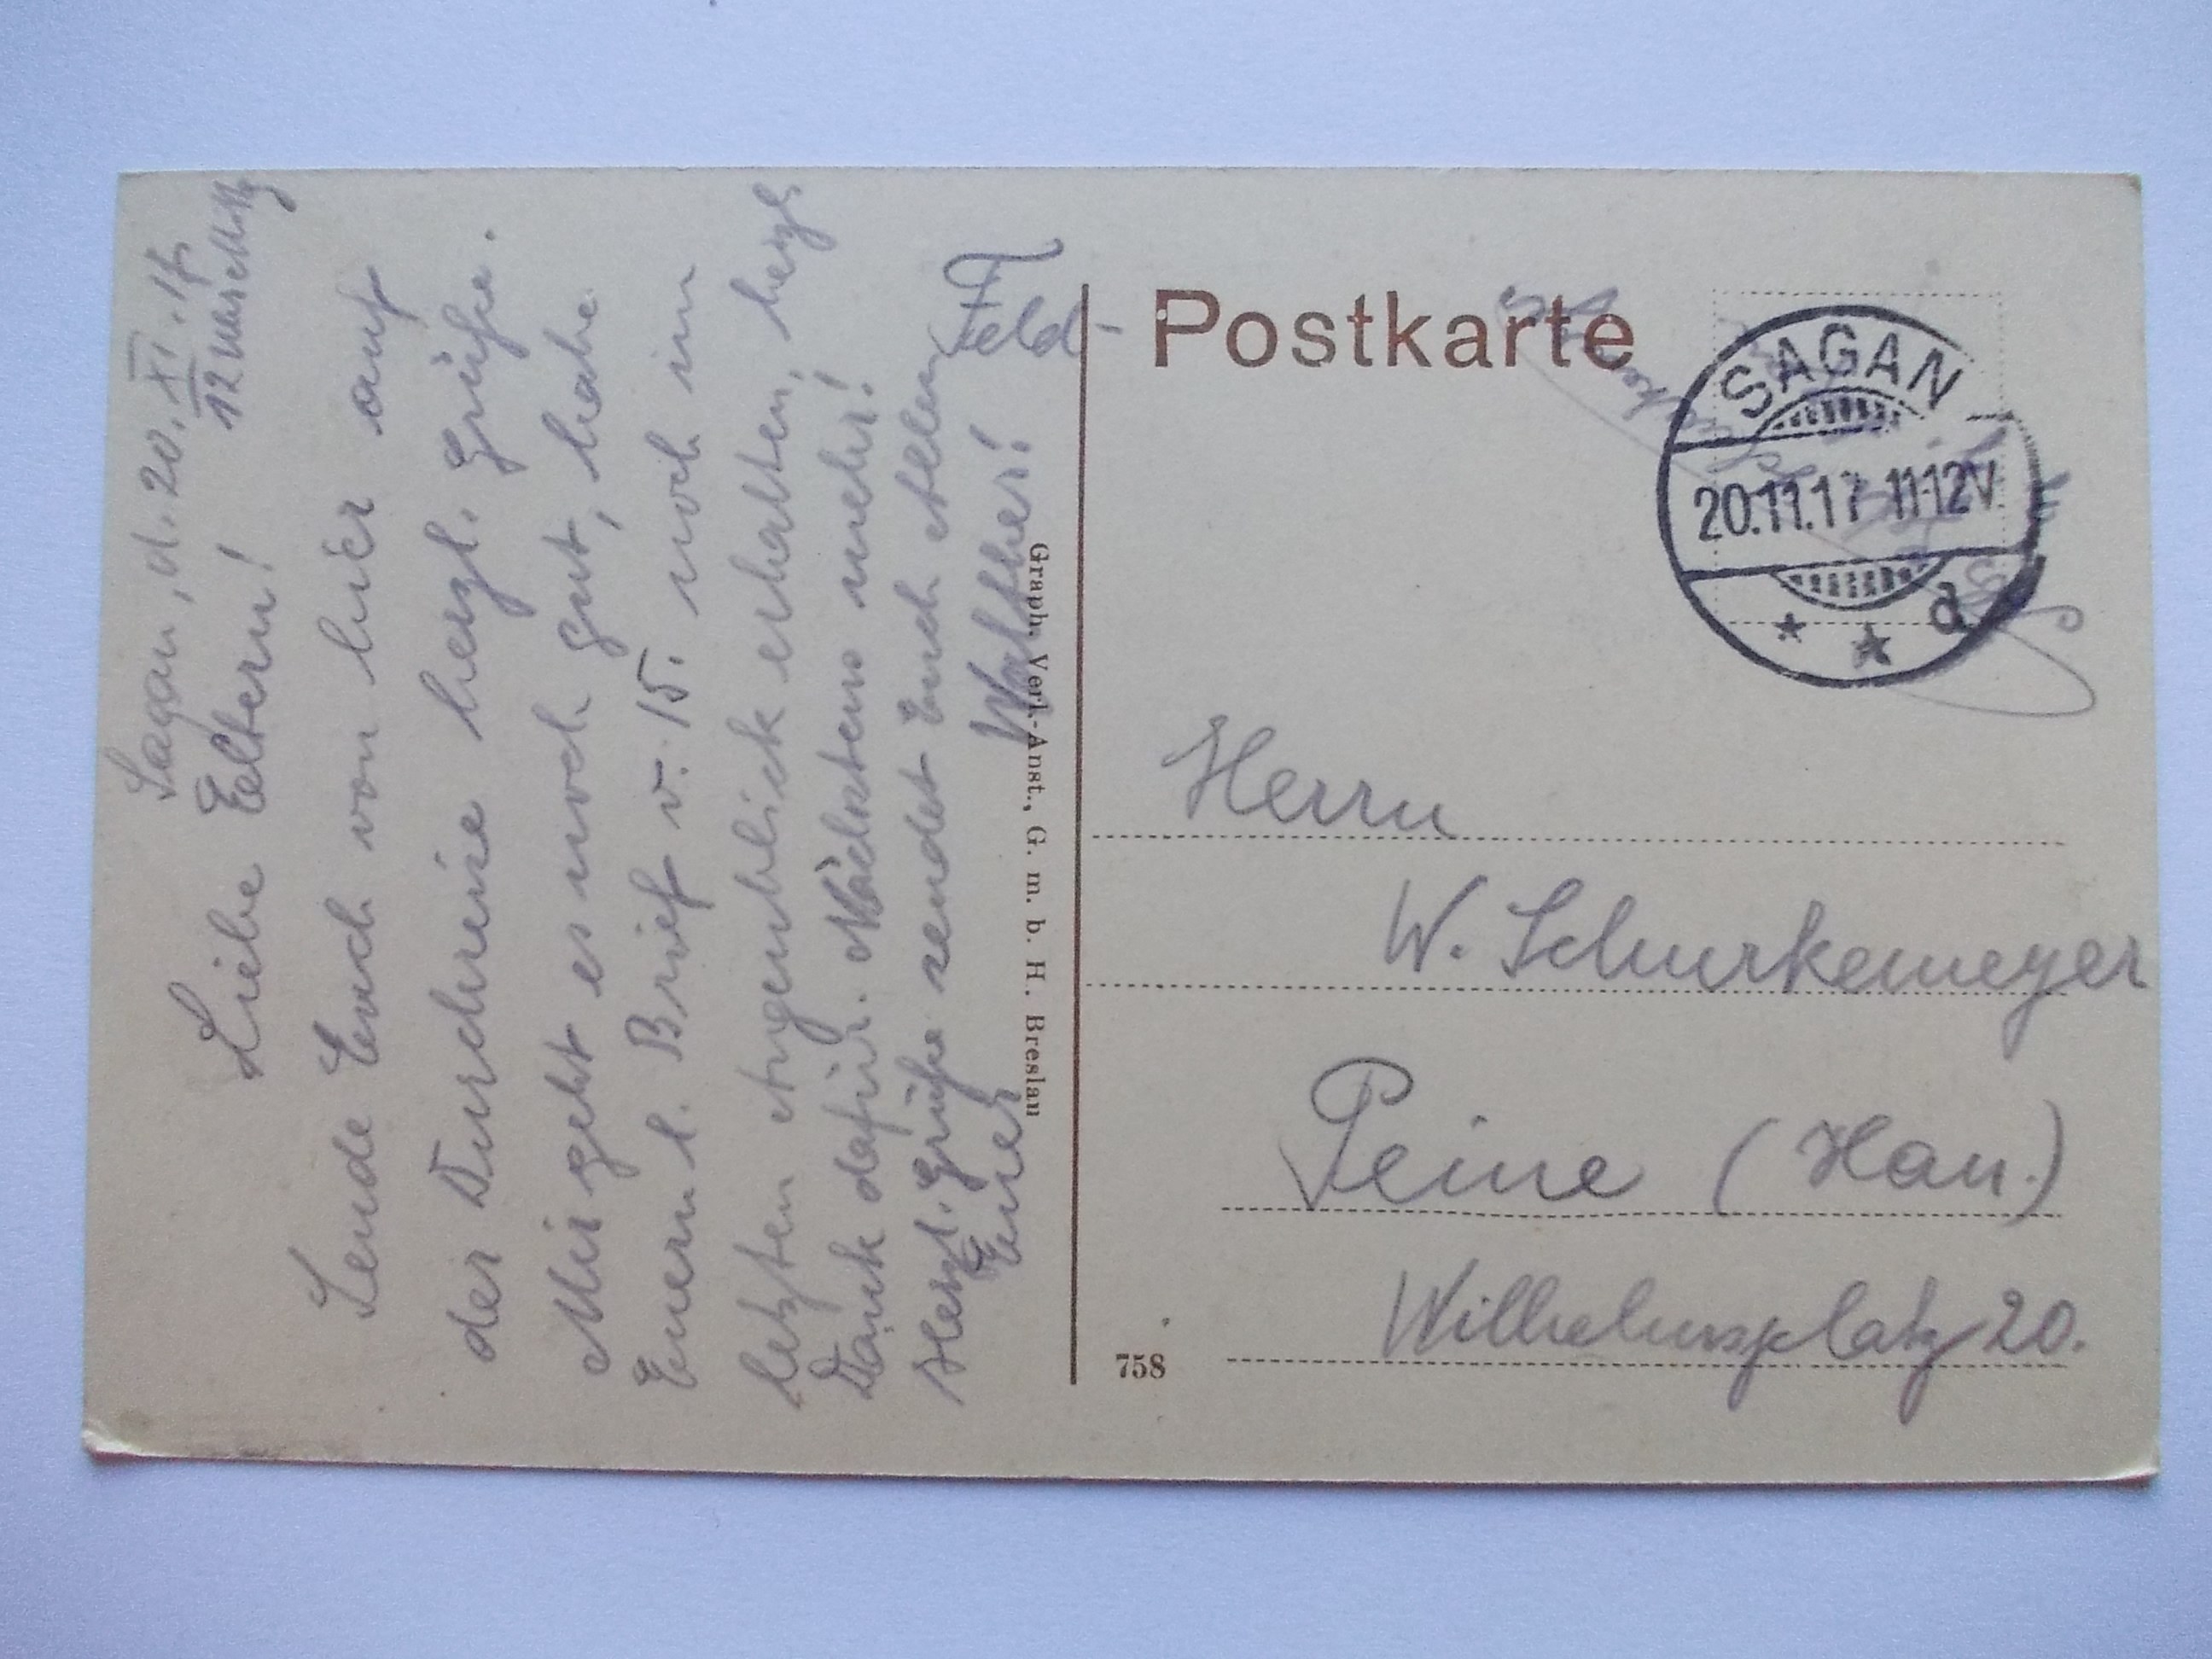 Sagan, d. 20. XI. 17.
12 
Liebe Eltern!
Sende Euch von hier auf
der Durchreise herzl. Grüße.
Mir geht es noch gut, habe
Euern l. Brief v. 15. noch im
letzten Augenblick erhalten, herzl.
Dank dafür. Nächstens mehr!
Herzl. Grüße sendet Euch Allen
Euer Walther!
Graph. Verl.-Anst., G. m. b. H. Breslau
Feld-
Postkarte
SAGAN
20.11.17 11-12V.
* * d
Herrn
W. Schurkemeyer
Peine (Han.)
Wilhelmsplatz 20.
758